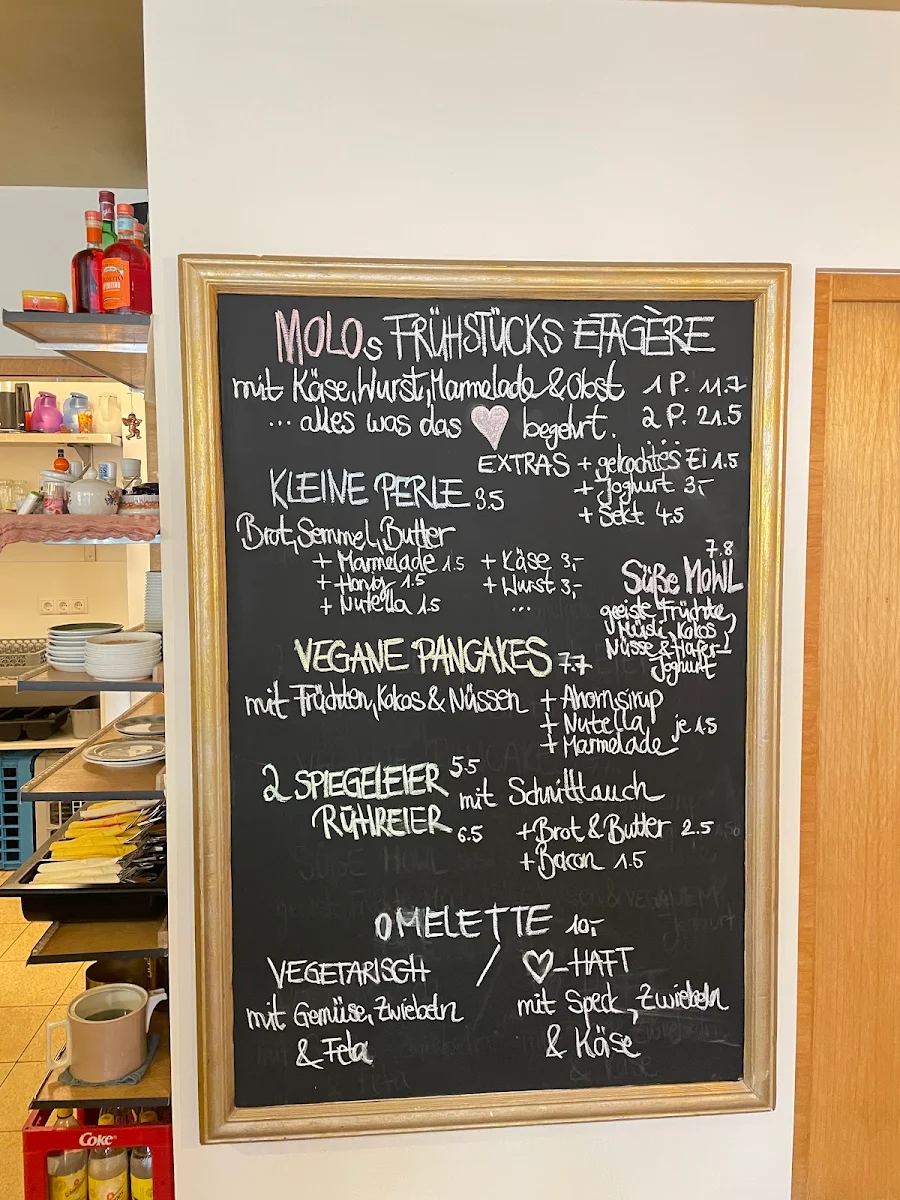 MOLOs FRÜHSTÜCKS ETAGÈRE
mit Käse, Wurst, Marmelade & Obst 1 P. 11.7
... alles was das ♥ begehrt. 2 P. 21.5
EXTRAS + gekochtes Ei 1.5
+ Joghurt 3,-
+ Sekt 4.5
KLEINE PERLE 3.5
Brot, Semmel, Butter
+ Marmelade 1.5 + Käse 3,-
+ Honig 1.5 + Wurst 3,-
+ Nutella 1.5 ...
7.8
SÜßE MOWL
geeiste Früchte,
Müsli, Kokos,
Nüsse & Hafer-
Joghurt
VEGANE PANCAKES 7.7
mit Früchten, Kokos & Nüssen + Ahornsirup
+ Nutella je 1.5
+ Marmelade
2 SPIEGELEIER 5.5
RÜHREIER 6.5 mit Schnittlauch
+ Brot & Butter 2.5
+ Bacon 1.5
OMELETTE 10,-
VEGETARISCH / ♡-HAFT
mit Gemüse, Zwiebeln mit Speck, Zwiebeln
& Feta & Käse
Coke